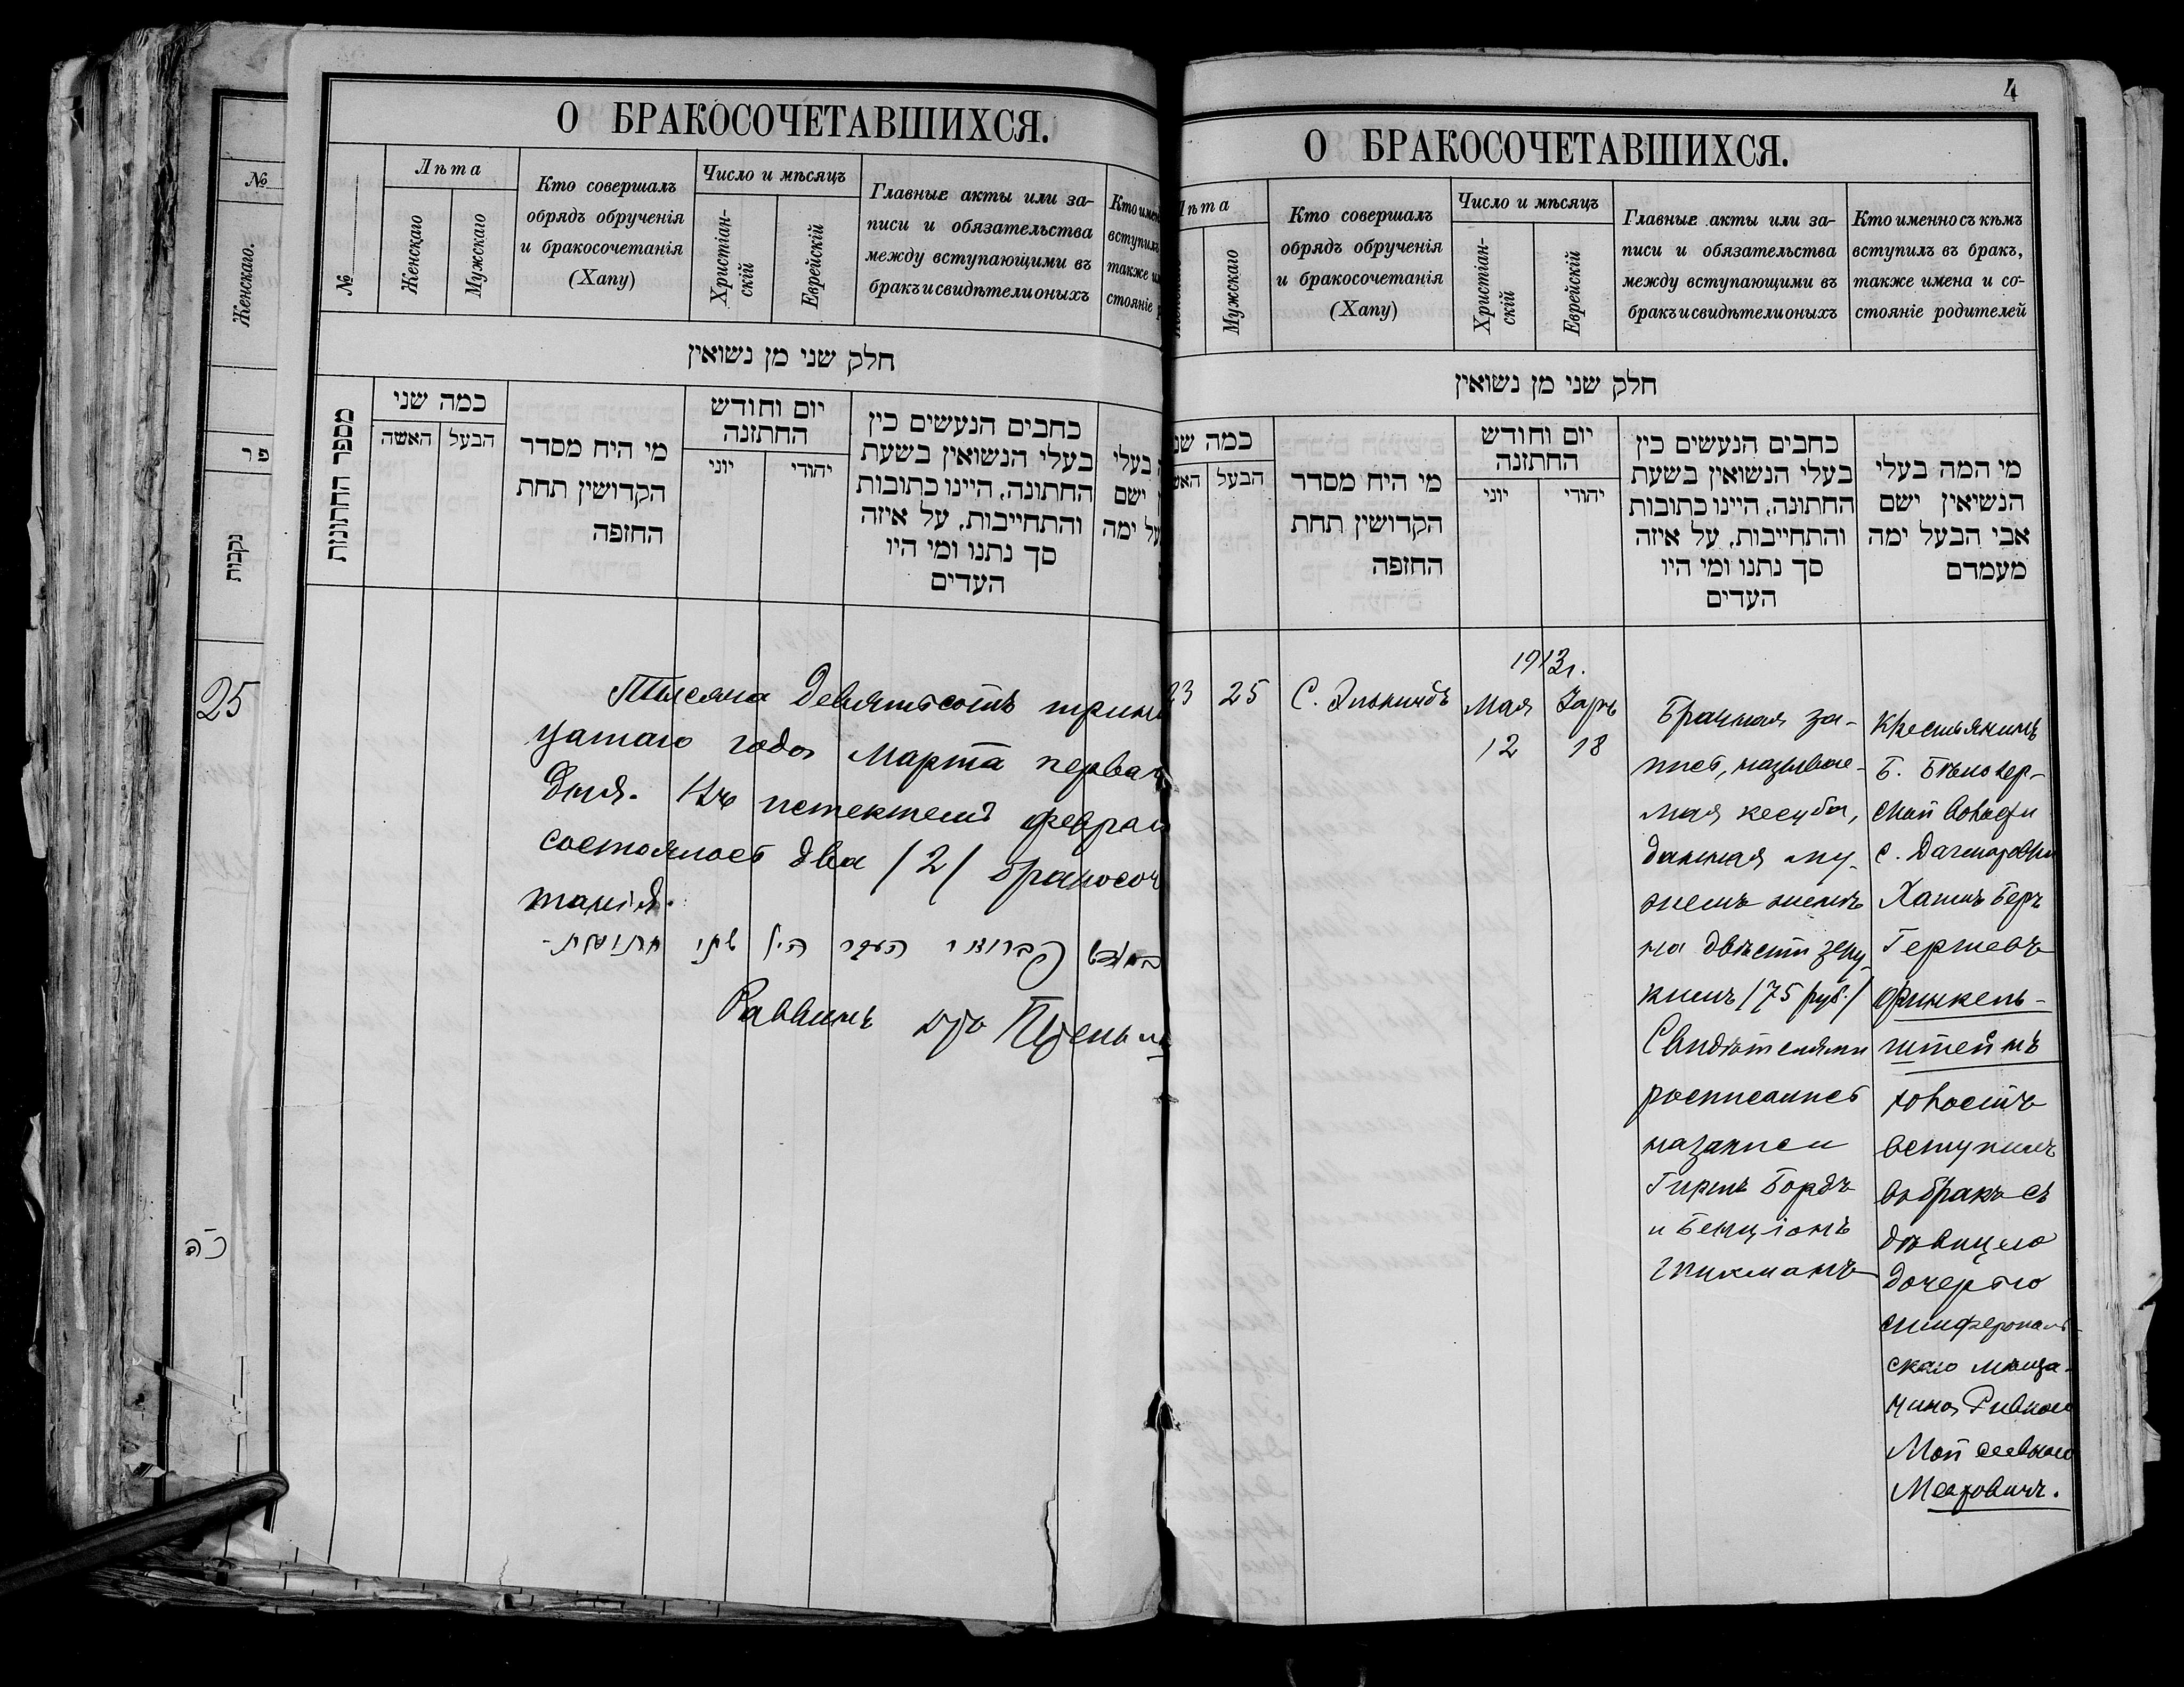 №
Женскаго.
פר
נקבות
25
כ"ה
О БРАКОСОЧЕТАВШИХСЯ.
№
Лѣта
Женскаго
Мужскаго
Кто совершалъ
обрядъ обрученія
и бракосочетанія
(Хапу)
Число и мѣсяцъ
Христіан-
скій
Еврейскій
Главные акты или за-
писи и обязательства
между вступающими въ
бракъ и свидѣтели оныхъ
Кто имен
вступилъ
также им
стояніе р
חלק שני מן נשואין
מספר החתונות
כמה שני
האשה
הבעל
מי היח מסדר
הקדושין תחת
החזפה
יום וחודש
החתזנה
יוני
יהודי
כחבים הנעשים כין
בעלי הנשואין בשעת
החתונה, היינו כתובות
והתחייבות, על איזה
סך נתנו ומי היו
העדים
בעלי
ישם
על ימה
Тысяча девятьсотъ трина
цатаго года Марта перваго
дня. Въ истекшемъ феврал
состоялось два /2/ бракосоч
танія.
שתי חתונות -
Раввинъ
4
О БРАКОСОЧЕТАВШИХСЯ.
Лѣта
Мужскаго
Кто совершалъ
обрядъ обрученія
и бракосочетанія
(Хапу)
Число и мѣсяцъ
Христіан-
скій
Еврейскій
Главные акты или за-
писи и обязательства
между вступающими въ
бракъ и свидѣтели оныхъ
Кто именно съ кѣмъ
вступилъ въ бракъ,
также имена и со-
стояніе родителей
חלק שני מן נשואין
כמה שנ
הבעל
מי היח מסדר
הקדושין תחת
החזפה
יום וחודש
החתזנה
יוני
יהודי
כחבים הנעשים כין
בעלי הנשואין בשעת
החתונה, היינו כתובות
והתחייבות, על איזה
סך נתנו ומי היו
העדים
מי המה בעלי
הנשיאין ישם
אבי הבעל ימה
מעמדם
23
25
С. Элькиндъ
1913 г.
Мая
12
Іаръ
18
Брачная за-
пись, называе-
мая кесуба,
данная му-
жемъ женѣ
на двѣсти зелу-
кимъ /75 руб./
Свидѣтелями
росписались
на записи
Гиршъ Бордъ
и Бенціонъ
Гликманъ
Крестьянинъ
Б. Бѣлозер-
ской волости
с.
Хаимъ Беръ
Гершевъ
Финкель-
штейнъ
холостъ
вступилъ
въ бракъ съ
дѣвицею
дочерью
симферополь-
скаго мѣща-
нина Ривкою
Мойсеевною
Меаровичъ.